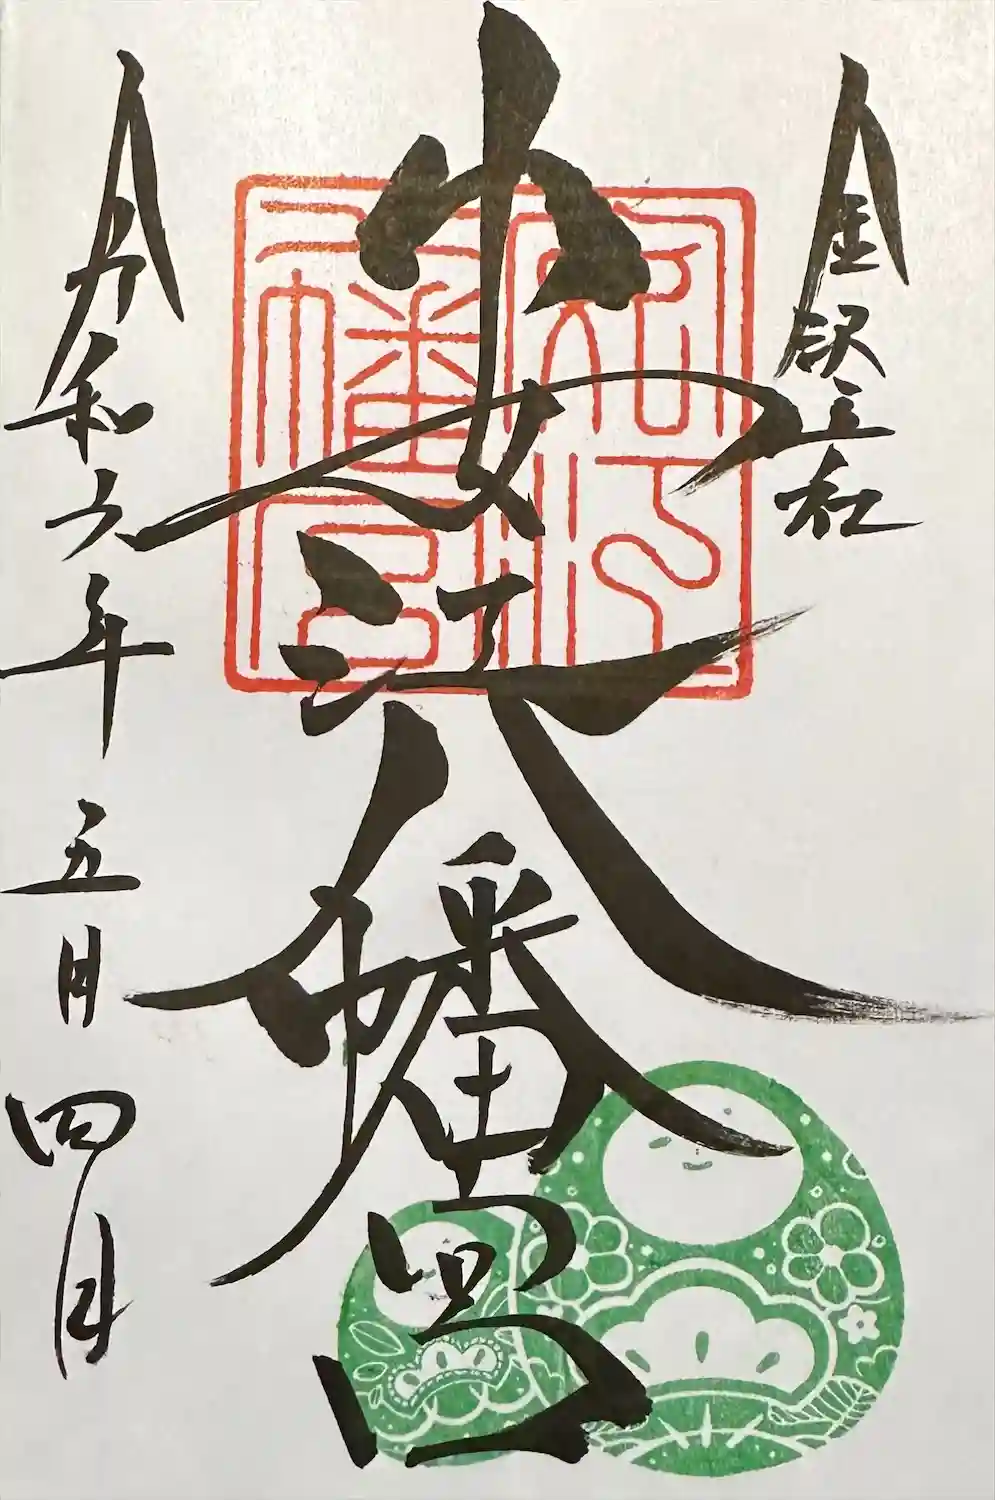 金沢五社
安江八幡宮
安江
八幡宮
令和六年五月四日